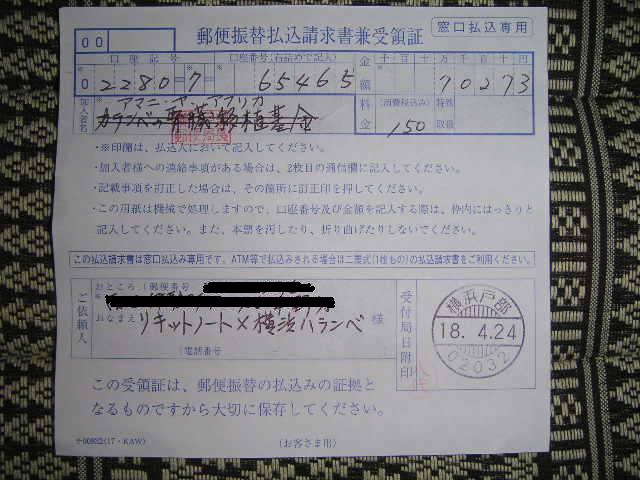 窓口払込専用
00
郵便振替払込請求書兼受領証
口座記号
口座番号(右詰めで記入)
金額
千百十万千百十円
02280=7=
65465
70273
加入者名
アマニ・ヤ・アフリカ
料金
(消費税込み)
150
特殊取扱
・※印欄は、払込人において記入してください。
・加入者様への連絡事項がある場合は、2枚目の通信欄に記入してください。
・記載事項を訂正した場合は、その箇所に訂正印を押してください。
・この用紙は機械で処理しますので、口座番号及び金額を記入する際は、枠内にはっきりと
記入してください。また、本票を汚したり、折り曲げたりしないでください。
この払込請求書は窓口払込み専用です。ATM等で払込みされる場合は二票式(1枚もの)の払込請求書をご利用ください。
ご依頼人
おところ(郵便番号
おなまえ
リキットノート×横浜ハランベ
様
(電話番号
受付局日附印
横浜戸部
18.4.24
02032
この受領証は、郵便振替の払込みの証拠と
なるものですから大切に保存してください。
(17・KAW)
(お客さま用)